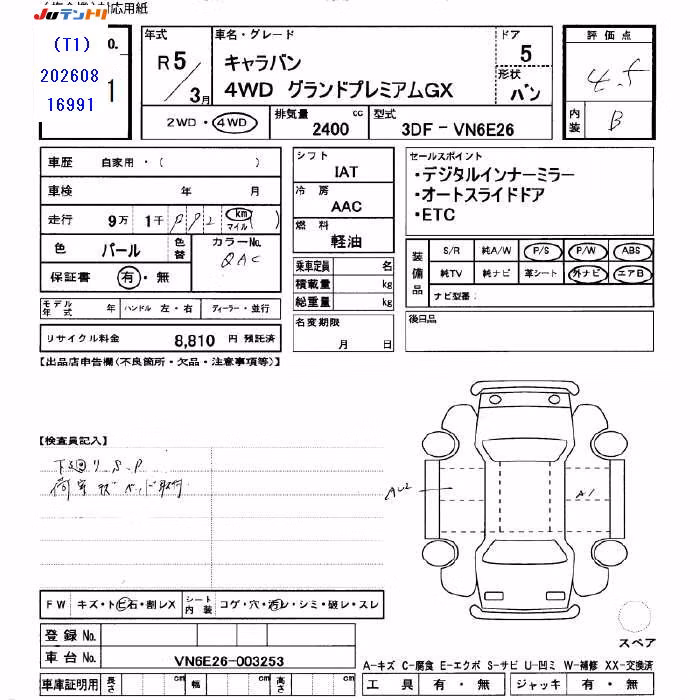 対応用紙
JUテントリ
(T1)
202608
16991
No.
1
年式
R 5 / 3月
車名・グレード
キャラバン
4WD グランドプレミアムGX
ドア
5
形状
バン
評価点
4.5
内装
B
2WD・4WD
排気量
2400 cc
型式
3DF-VN6E26
車歴 自家用・( )
車検 年 月
走行 9万 1千
km
マイル
( )
色 パール
色替
カラーNo.
QAC
保証書 有・無
モデル年式 年
ハンドル 左・右
ディーラー・並行
リサイクル料金 8,810 円 預託済
シフト
IAT
冷房
AAC
燃料
軽油
乗車定員 名
積載量 kg
総重量 kg
名変期限
月 日
セールスポイント
・デジタルインナーミラー
・オートスライドドア
・ETC
装備品
S/R 純A/W P/S P/W ABS
純TV 純ナビ 革シート 外ナビ エアB
ナビ型番:
後日品
【出品店申告欄(不良箇所・欠品・注意事項等)】
【検査員記入】
下廻りS.P
荷室ベッド取付
AU2
A1
FW キズ・トビ石・割レX
シート内装
コゲ・穴・汚レ・シミ・破レ・スレ
登録No.
車台No. VN6E26-003253
車庫証明用 長さ cm 幅 cm 高さ cm
スペア
A-キズ C-腐食 E-エクボ S-サビ U-凹ミ W-補修 XX-交換済
工具 有・無 ジャッキ 有・無